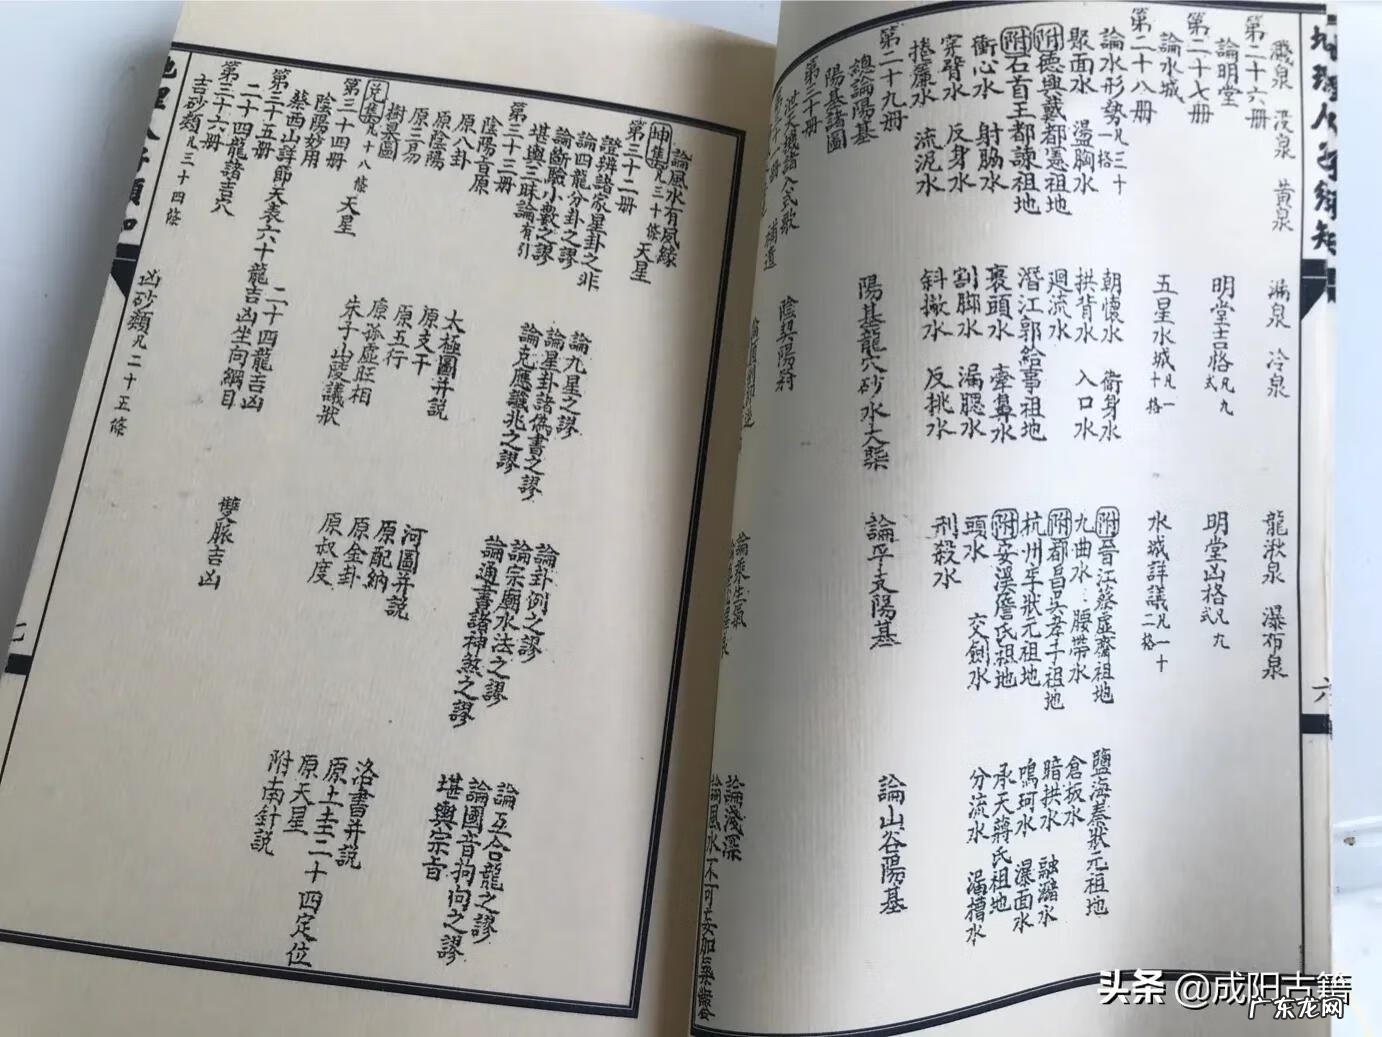 地理人子須知 六
瀸泉 沒泉 黃泉 漏泉 冷泉 龍湫泉 瀑布泉
第二十六冊
論明堂 明堂吉格凡九式 明堂凶格凡九式
第二十七冊
論水城 五星水城凡一十格 水城詳議凡一十二格
第二十八冊
論水形勢凡三十一格 朝懷水 衛身水 附晉江蔡虛齋祖地 鹽海秦狀元祖地
聚面水 盪胸水 拱背水 入口水 九曲水 腰帶水 倉板水
附德興戴都憲祖地 迴流水 附都昌吳孝子祖地 暗拱水 融瀦水
附石首王都諫祖地 潛江郭給事祖地 杭州狀元祖地 鳴珂水 瀑面水
衝心水 射脇水 裹頭水 牽鼻水 附安溪詹氏祖地 承天蔣氏祖地
穿臂水 反身水 割脚水 漏腮水 頭水 交劍水 分流水 漏槽水
捲簾水 流泥水 斜撇水 反挑水 刑殺水
第二十九冊
總論陽基 陽基龍穴砂水大槩 論平支陽基 論山谷陽基
陽基諸圖
第三十冊
泄天機諸入式歌 補遺 陰契陽符
論乘生氣 論淺深
論風水不可妄加
論風水有夙緣
坤集凡三十條 天星
第三十二冊
證辨諸家星卦之非 論九星之謬 論卦例之謬 論互合龍之謬
論四龍分卦之謬 論星卦諸偽書之謬 論宗廟水法之謬 論圖音拘向之謬
論斷驗小數之謬 論克應讖兆之謬 論通書諸神煞之謬 堪輿宗旨
堪輿三昧論有引
第三十三冊
陰陽盲原 太極圖并說 河圖并說 洛書并說
原八卦 原支干 原配納 原土圭二十四定位
原陰陽 原五行 原金卦 原天星
原三易 原孤虛旺相 原叔度 附南針說
樹景圖 朱子山陵議狀
兌集凡十八條 天星
第三十四冊
陰陽妙用
蔡西山詳節天表六十龍吉凶坐向綱目
第三十五冊
二十四龍諸吉穴 二十四龍吉凶 雙脈吉凶
第三十六冊
吉砂類凡三十四條 凶砂類凡二十五條
七
头条 @成阳古籍
广东龙网